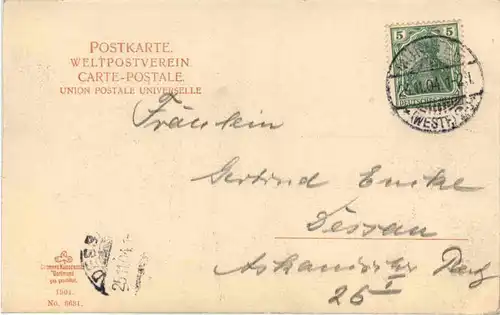 POSTKARTE.
WELTPOSTVEREIN.
CARTE-POSTALE.
UNION POSTALE UNIVERSELLE
5 5
(WESTF.)
Fräulein
Gertrud Emcke
Dessau
Askanische
25 I
DESS
25.11.04
1504.
No. 6631.